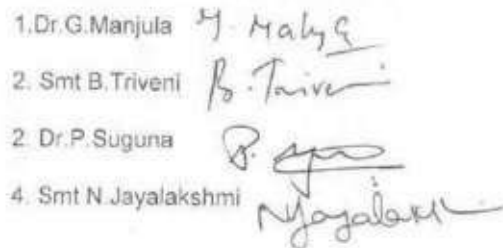 1.Dr.G.Manjula
2. Smt B.Triveni B. Triveni
2. Dr.P.Suguna
4. Smt N.Jayalakshmi NJayalakshmi